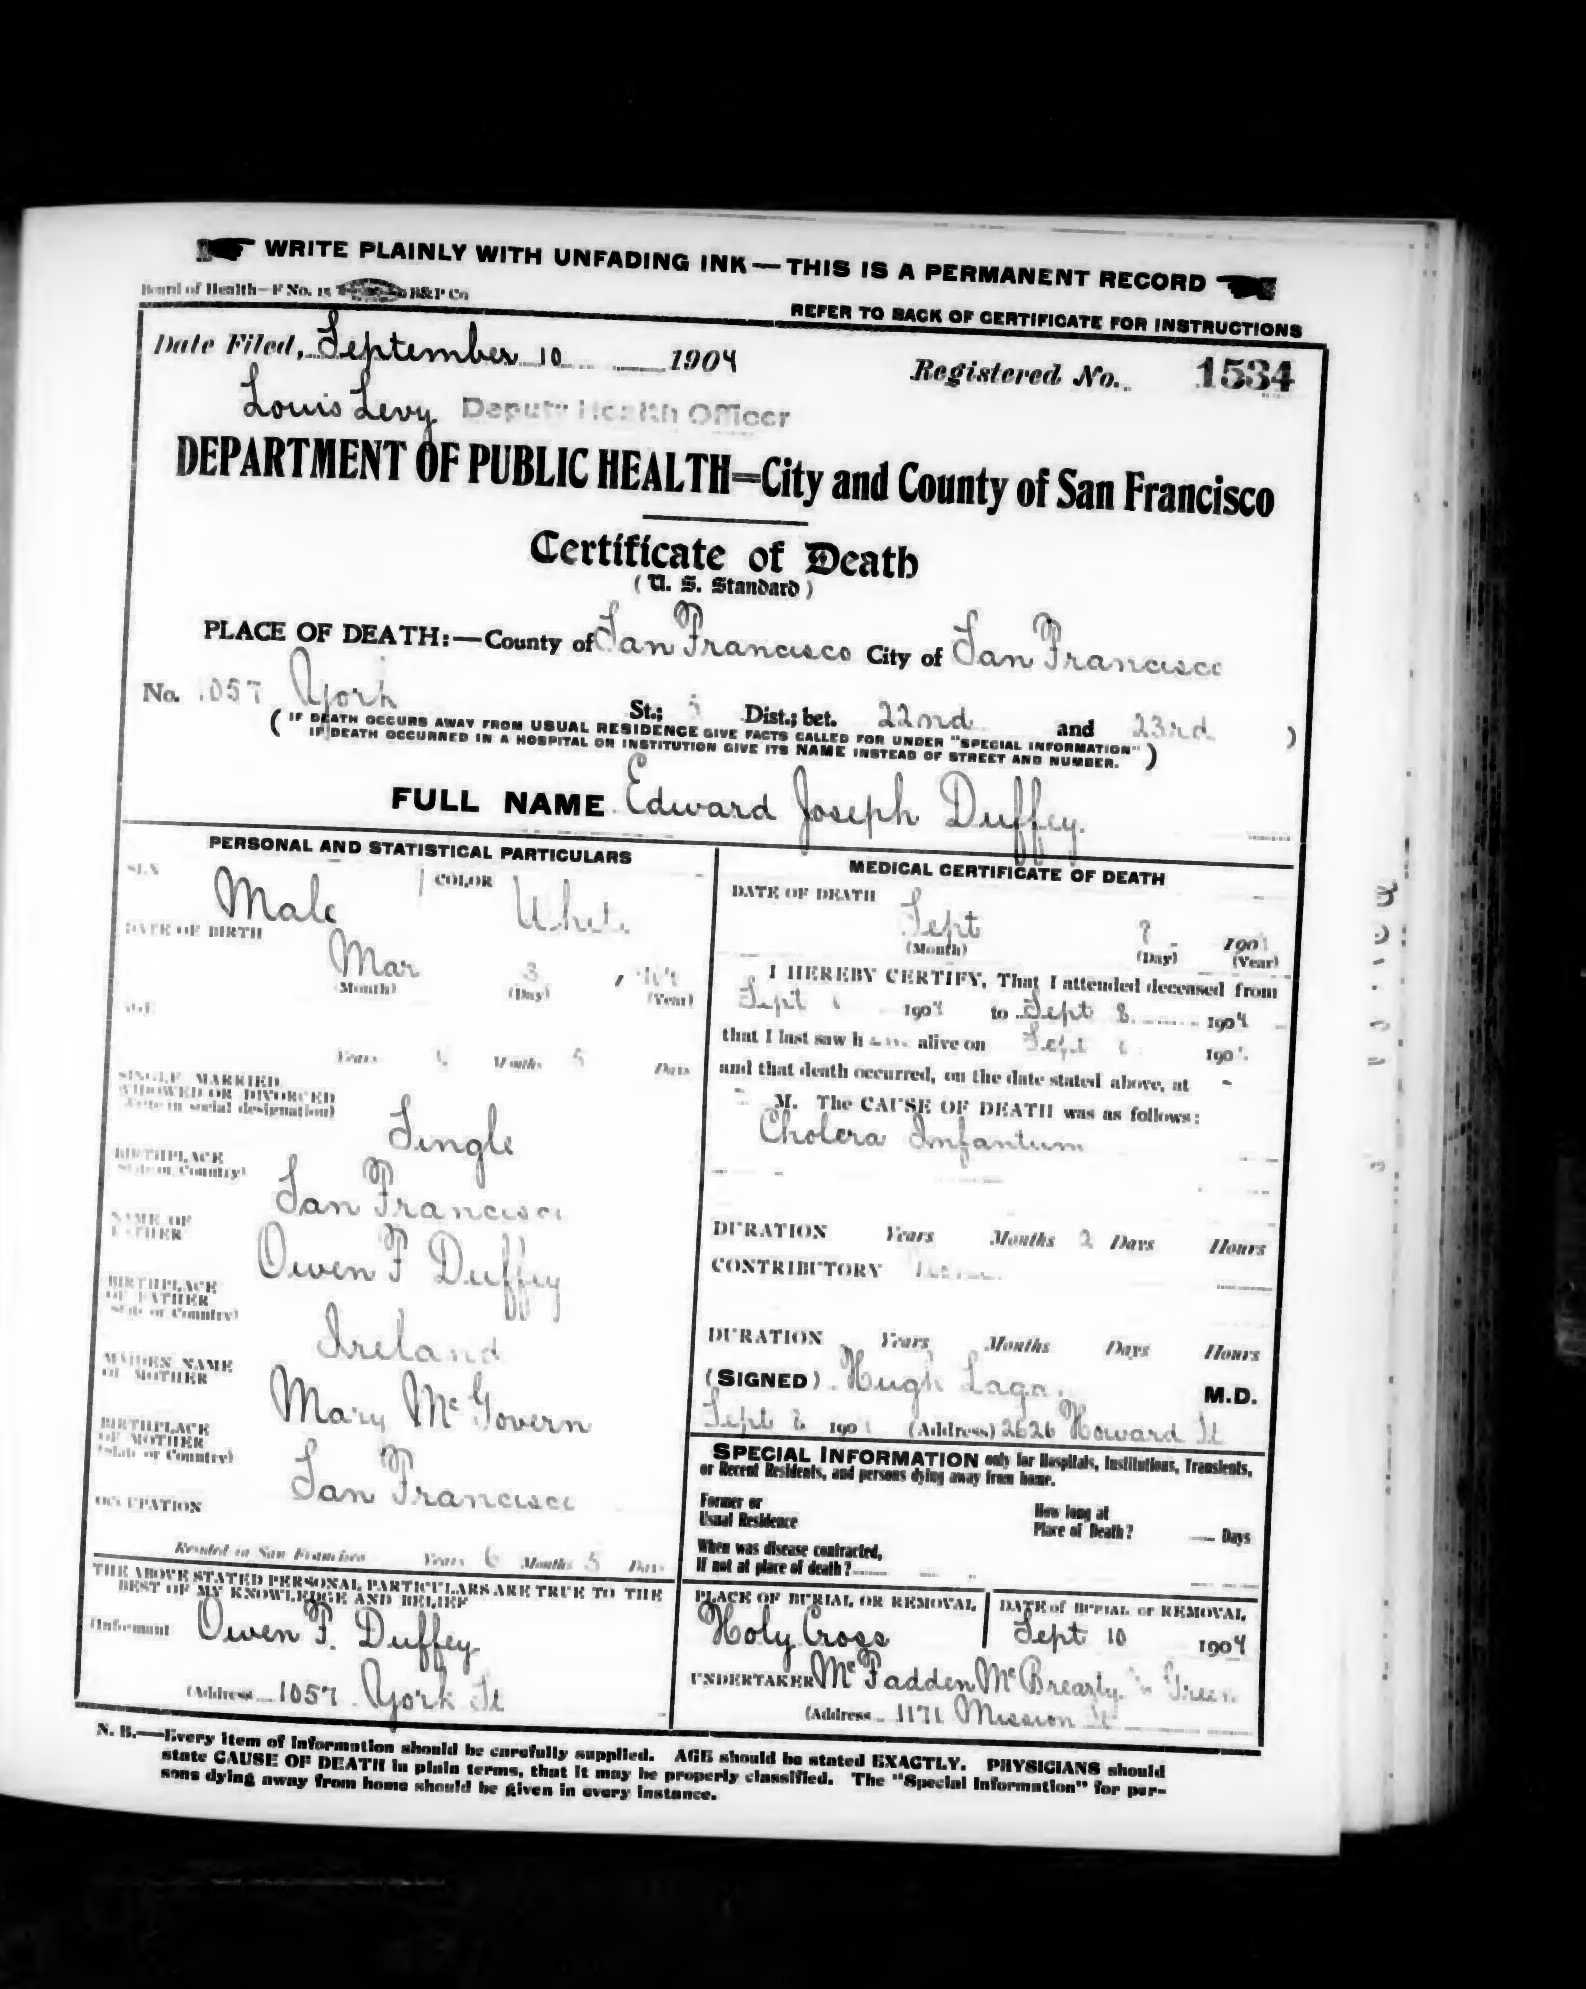 WRITE PLAINLY WITH UNFADING INK—THIS IS A PERMANENT RECORD
Board of Health—F No. 15 B&P Co
REFER TO BACK OF CERTIFICATE FOR INSTRUCTIONS
Date Filed, September 10 1904 Registered No. 1534
Louis Levy Deputy Health Officer
DEPARTMENT OF PUBLIC HEALTH=City and County of San Francisco
Certificate of Death
(U. S. Standard)
PLACE OF DEATH:—County of San Francisco City of San Francisco
No. 1057 York St.; Dist.; bet. 22nd and 23rd )
( IF DEATH OCCURS AWAY FROM USUAL RESIDENCE GIVE FACTS CALLED FOR UNDER "SPECIAL INFORMATION"
IF DEATH OCCURRED IN A HOSPITAL OR INSTITUTION GIVE ITS NAME INSTEAD OF STREET AND NUMBER. )
FULL NAME Edward Joseph Duffey.
PERSONAL AND STATISTICAL PARTICULARS
SEX Male COLOR White
DATE OF BIRTH Mar 3
(Month) (Day) (Year)
AGE
Years Months 5 Days
SINGLE MARRIED
WIDOWED OR DIVORCED
(Write in social designation)
Single
BIRTHPLACE
(State or Country)
San Francisco
NAME OF
FATHER
Owen F Duffey
BIRTHPLACE
OF FATHER
(State or Country)
Ireland
MAIDEN NAME
OF MOTHER
Mary McGovern
BIRTHPLACE
OF MOTHER
(State or Country)
San Francisco
OCCUPATION
Resided in San Francisco Years 6 Months 5 Days
THE ABOVE STATED PERSONAL PARTICULARS ARE TRUE TO THE
BEST OF MY KNOWLEDGE AND BELIEF
(Informant Owen F. Duffey
(Address 1057 York St
MEDICAL CERTIFICATE OF DEATH
DATE OF DEATH
Sept 190
(Month) (Day) (Year)
I HEREBY CERTIFY, That I attended deceased from
Sept 1904 to Sept 8 1904
that I last saw h alive on Sept 190
and that death occurred, on the date stated above, at
M. The CAUSE OF DEATH was as follows:
Cholera Infantum
DURATION Years Months 2 Days Hours
CONTRIBUTORY
DURATION Years Months Days Hours
(SIGNED) Hugh Lagan M.D.
Sept 8 190 (Address) 2626 Howard St
SPECIAL INFORMATION only for Hospitals, Institutions, Transients,
or Recent Residents, and persons dying away from home.
Former or
Usual Residence
How long at
Place of Death? Days
When was disease contracted,
If not at place of death?
PLACE OF BURIAL OR REMOVAL
Holy Cross
DATE of BURIAL or REMOVAL
Sept 10 1904
UNDERTAKER McFadden McBrearty & Green
(Address 1171 Mission St
N. B.—Every item of information should be carefully supplied. AGE should be stated EXACTLY. PHYSICIANS should
state CAUSE OF DEATH in plain terms, that it may be properly classified. The "Special Information" for per-
sons dying away from home should be given in every instance.